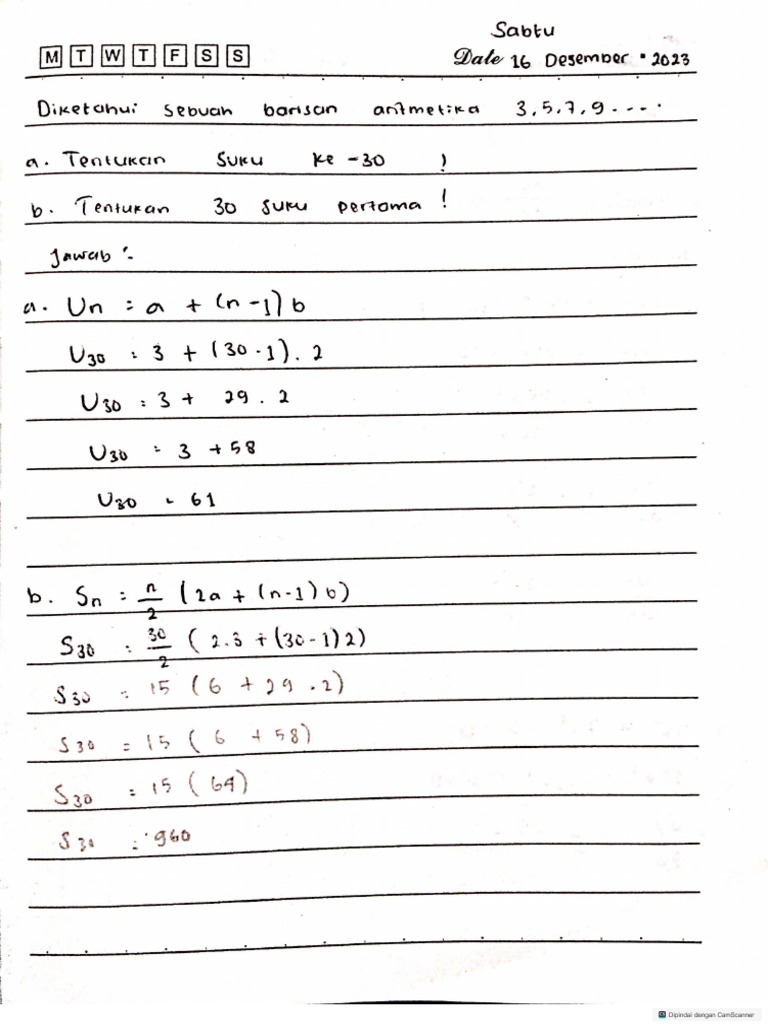 Sabtu
M T W T F S S
Date 16 Desember 2023
Diketahui sebuah barisan aritmetika 3, 5, 7, 9 ....
a. Tentukan suku ke -30 !
b. Tentukan 30 suku pertama !
Jawab :
a. Un = a + (n -1) b
U30 = 3 + (30 - 1) . 2
U30 = 3 + 29 . 2
U30 = 3 + 58
U30 = 61
b. Sn = n/2 (2a + (n-1) b)
S30 = 30/2 (2.3 + (30-1) 2)
S30 = 15 (6 + 29 . 2)
S30 = 15 (6 + 58)
S30 = 15 (64)
S30 = 960
Dipindai dengan CamScanner